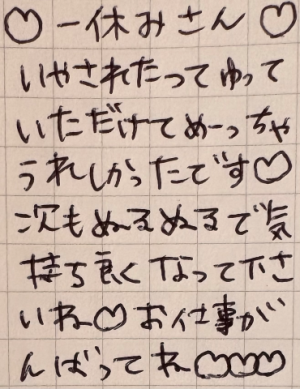 ♡一休みさん♡
いやされたってゆって
いただけてめーっちゃ
うれしかったです♡
次もぬるぬるで気
持ち良くなって下さ
いね♡お仕事が
んばってね♡♡♡